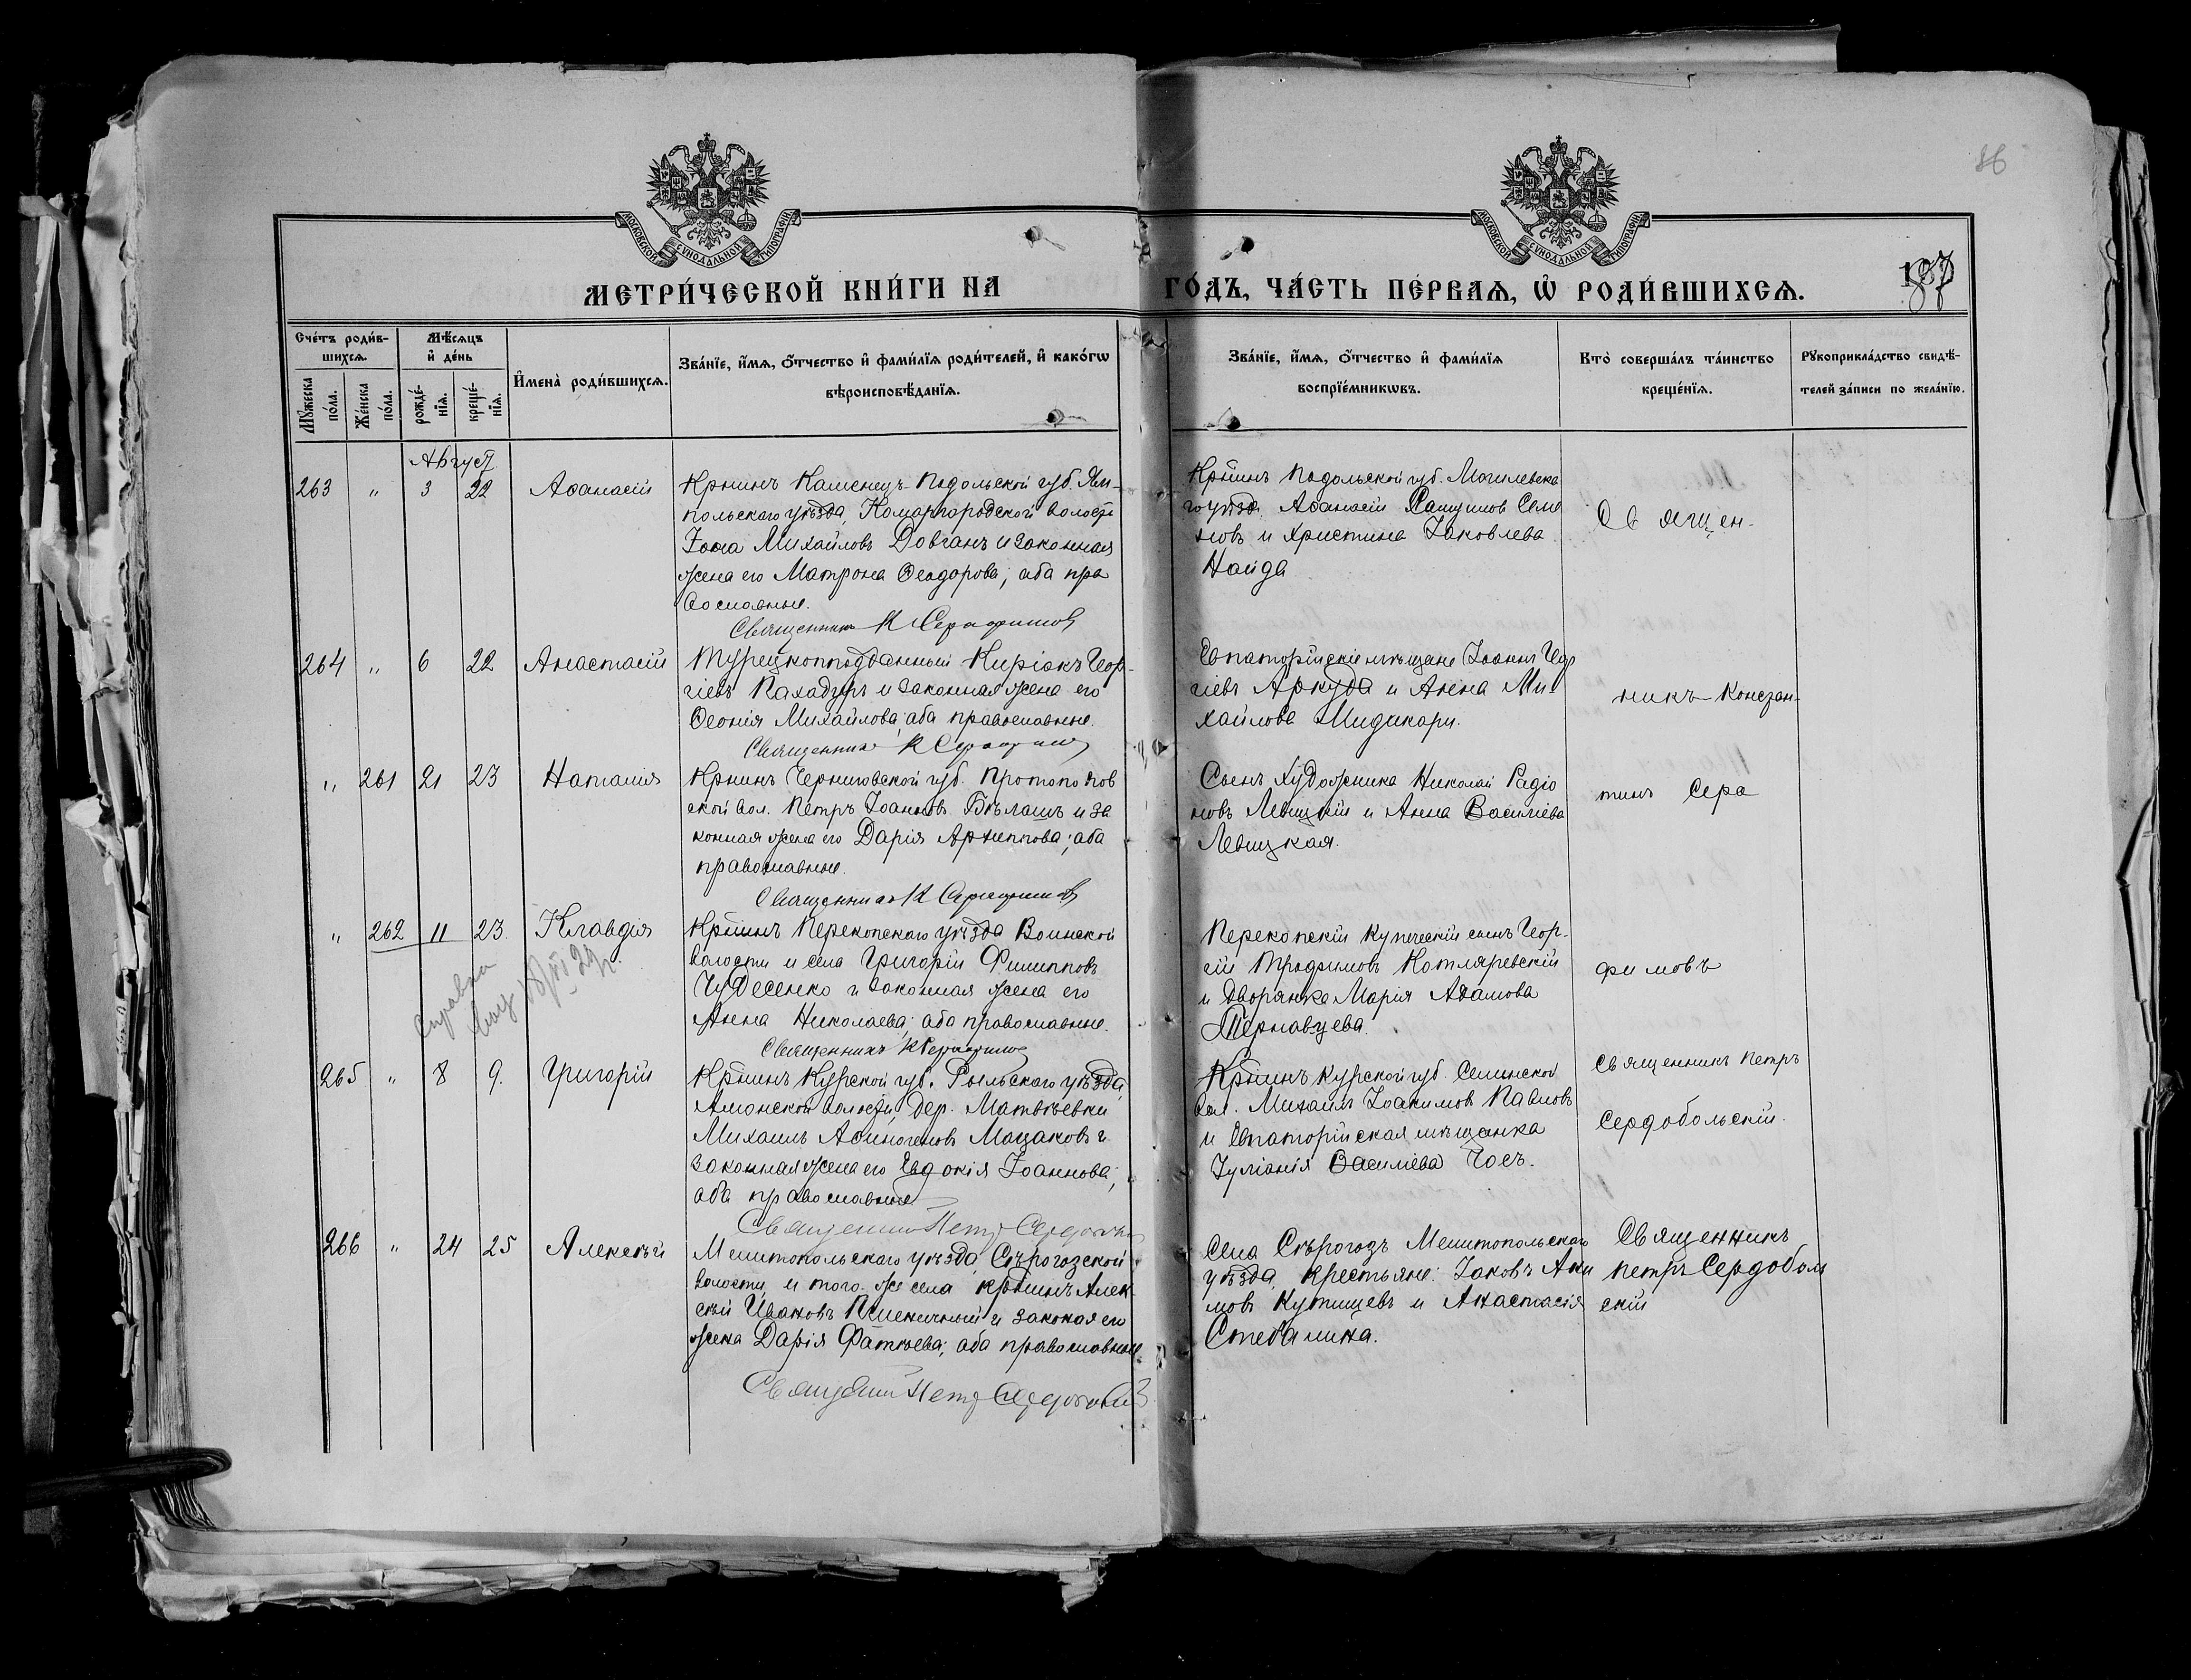 86
МОСКОВСКОЙ СѴНОДАЛЬНОЙ ТИПОГРАФІИ
МОСКОВСКОЙ СѴНОДАЛЬНОЙ ТИПОГРАФІИ
МЕТРИ́ЧЕСКОЙ КНИ́ГИ НА ГО́ДЪ, ЧА́СТЬ ПЕ́РВАѦ, Ѡ҆ РОДИ́ВШИХСѦ.
187
Сче́тъ роди́в-
шихсѧ.
Мꙋжеска
по́ла.
Же́нска
по́ла.
Мѣ́сѧцъ
и҆ де́нь
рожде́-
нїѧ.
креще́-
нїѧ.
И҆мена̀ роди́вшихсѧ.
Зва́нїе, и҆́мѧ, ѻ҆́тчество и҆ фами́лїѧ роди́телей, и҆ како́гѡ
вѣроисповѣ́данїѧ.
Зва́нїе, и҆́мѧ, ѻ҆́тчество и҆ фами́лїѧ
воспрїе́мникѡвъ.
Кто̀ соверша́лъ та́инство
креще́нїѧ.
Рꙋкоприкла́дство свидѣ́-
телей за́писи по жела́нїю.
Август
263 " 3 22 Афанасій
Кр̃нинъ Каменецъ-Подольской губ. Ям-
польскаго уѣзда, Комаргородской волости
Іона Михайловъ Довганъ и законная
жена его Матрона Ѳеодорова; оба пра
вославные.
Священникъ К Серафимовъ
Кр̃нинъ Подольской губ. Могилевска
го уѣзд. Аѳанасій Семе
новъ и Христина Іаковлева
Найда
Священ-
264 " 6 22 Анастасій
Турецкоподданный Киріакъ Геор-
гіевъ Пахадуръ и законная жена его
Ѳеонія Михайлова; оба православные.
Священникъ К Серафимовъ
Евпаторійскіе мѣщане Іоаннъ Геор
гіевъ Аркуда и Анна Ми-
хайлова Мидикари.
никъ Констан-
" 261 21 23 Наталія
Кр̃нинъ Черниговской губ. Протопопов
ской вол. Петръ Іоанновъ Бѣлашъ и за
конная жена его Дарія Архиппова; оба
православные.
Священникъ К Серафимовъ
Сынъ художника Николай Радіо
новъ Левицкій и Анна Василіева
Левицкая.
тинъ Сера
" 262 11 23. Клавдія
Справка
Кр̃нинъ Перекопскаго уѣзда Воинской
волости и села Григорій Филипповъ
Чудесенко и законная жена его
Анна Николаева; оба православные.
Священникъ К Серафимовъ
Перекопскій купеческій сынъ Геор-
гій Трофимовъ Котляревскій
и дворянка Марія Адамова
Тернавцева.
фимовъ
265 " 8 9. Григорій
Кр̃нинъ Курской губ. Рыльскаго уѣзда,
Амонской волости, дер. Матвѣевки
Михаилъ Аѳиногеновъ Мацаковъ и
законная жена его Евдокія Іоаннова;
оба православные
Священникъ Петръ Сердобольскій
Кр̃нинъ Курской губ.
вол. Михаилъ Іоакимовъ Павловъ
и Евпаторійская мѣщанка
Іуліанія Василіева Чосъ.
Священникъ Петръ
Сердобольскій.
266 " 24 25 Алексѣй
Мелитопольскаго уѣзда, Сѣрогозской
волости, и того-же села кр̃нинъ Алек
сѣй Ивановъ Пшеничный и законая его
жена Дарія Фатѣева; оба православные.
Священникъ Петръ Сердобольскій
Села Сѣрогозъ Мелитопольскаго
уѣзда, крестьяне: Іаковъ Аки
мовъ Кутищевъ и Анастасія
Стебалина.
Священникъ
Петръ Сердоболь
скій